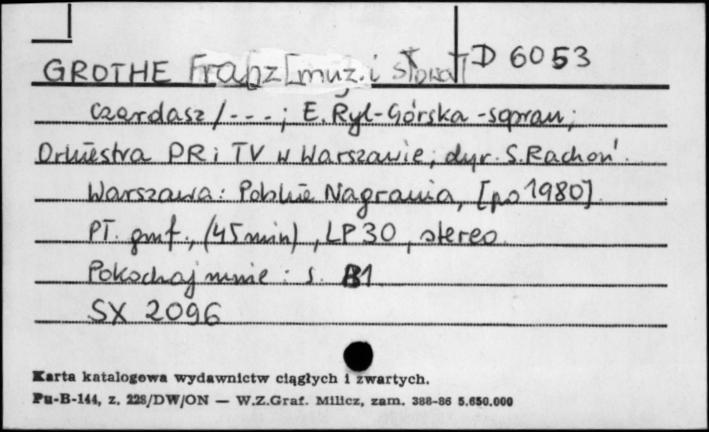 GROTHE Franz [muz. i słowa] D 6053
Czardasz / - - - ; E. Ryl-Górska - sopran ;
Orkiestra PR i TV w Warszawie ; dyr. S. Rachoń.
Warszawa : Polskie Nagrania, [po 1980]
Pł. gmf., (45 min), LP 30, stereo
Pokochaj mnie : s. B1
SX 2096
Karta katalogowa wydawnictw ciągłych i zwartych.
Pu-B-144, z. 228/DW/ON — W.Z.Graf. Milicz, zam. 388-86 5.650.000